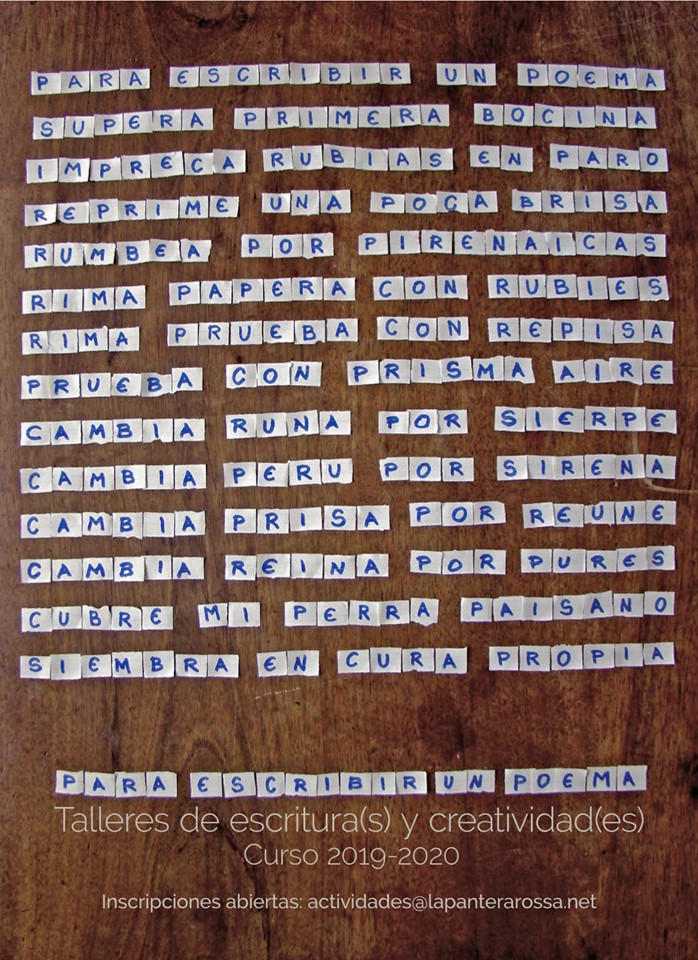 PARA ESCRIBIR UN POEMA
SUPERA PRIMERA BOCINA
IMPRECA RUBIAS EN PARO
REPRIME UNA POCA BRISA
RUMBEA POR PIRENAICAS
RIMA PAPERA CON RUBIES
RIMA PRUEBA CON REPISA
PRUEBA CON PRISMA AIRE
CAMBIA RUNA POR SIERPE
CAMBIA PERU POR SIRENA
CAMBIA PRISA POR REUNE
CAMBIA REINA POR PURES
CUBRE MI PERRA PAISANO
SIEMBRA EN CURA PROPIA
PARA ESCRIBIR UN POEMA
Talleres de escritura(s) y creatividad(es)
Curso 2019-2020
Inscripciones abiertas: actividades@lapanterarossa.net